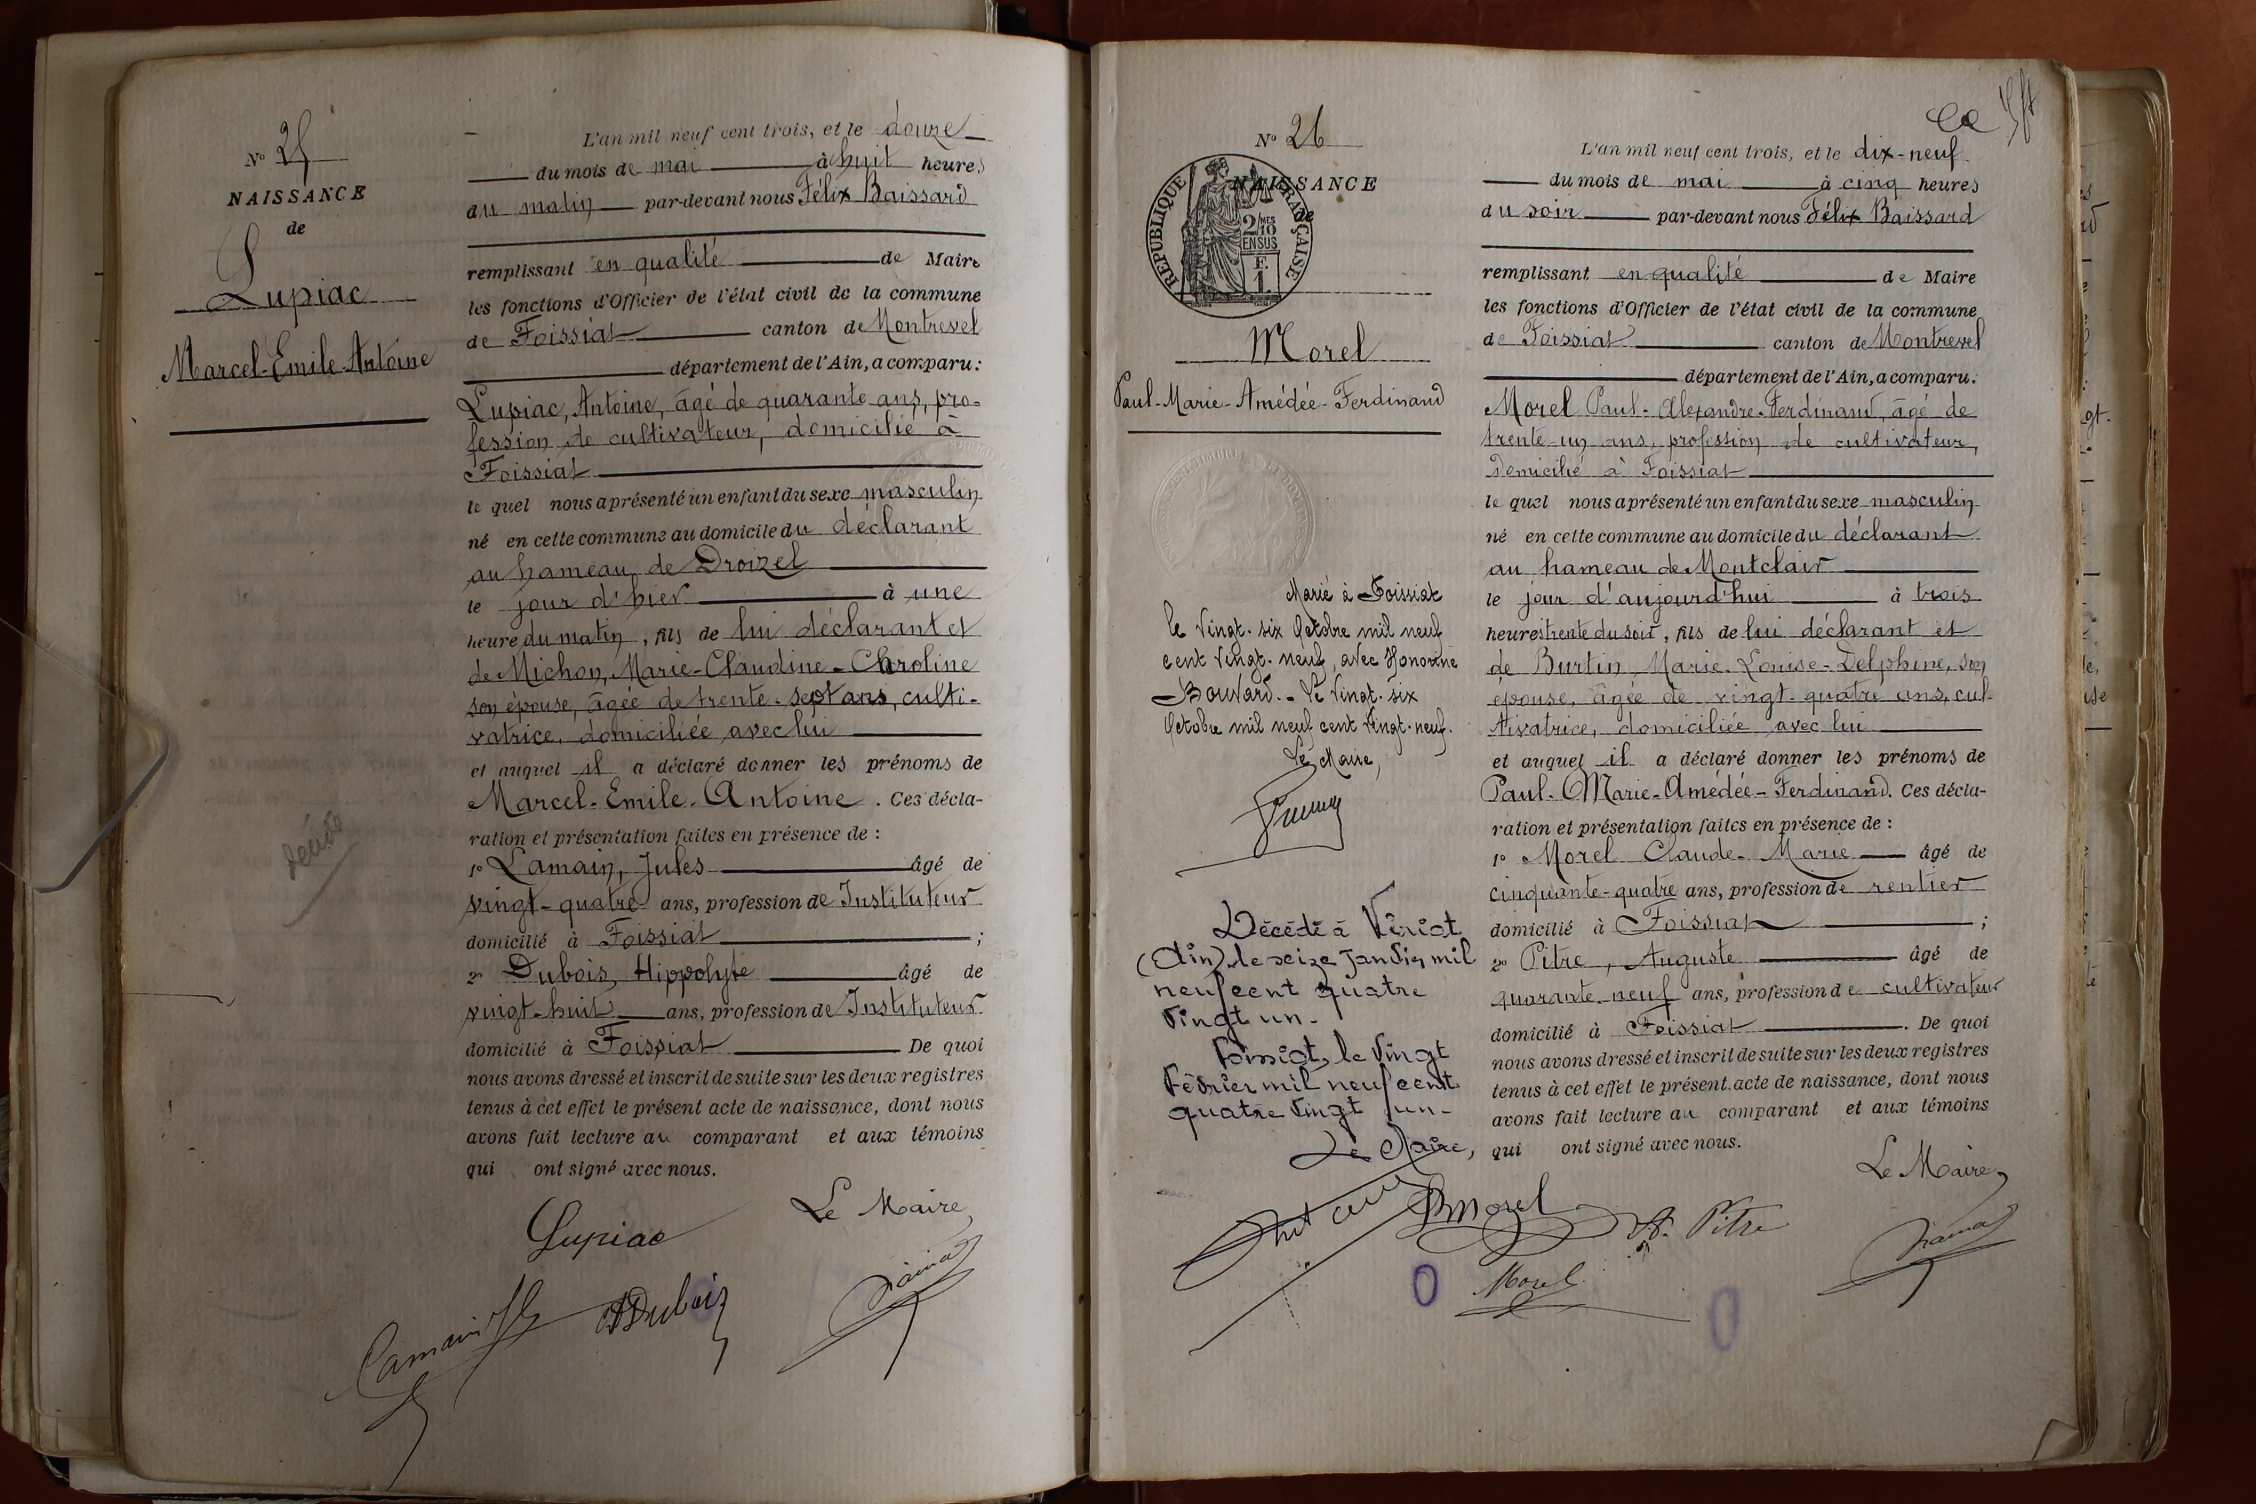 Nº 25
NAISSANCE
de
Lupiac
Marcel-Emile-Antoine
L'an mil neuf cent trois, et le douze
du mois de mai à huit heures
du matin par-devant nous Félix Baissard
remplissant en qualité de Maire
les fonctions d'Officier de l'état civil de la commune
de Foissiat canton de Montrevel
département de l'Ain, a comparu:
Lupiac, Antoine, âgé de quarante ans, pro=
fession de cultivateur, domicilié à
Foissiat
le quel nous a présenté un enfant du sexe masculin
né en cette commune au domicile du déclarant
au hameau de Droizel
le jour d'hier à une
heure du matin, fils de lui déclarant et
de Michon, Marie-Claudine-Caroline
son épouse, âgée de trente-sept ans, culti-
vatrice, domiciliée avec lui
et auquel il a déclaré donner les prénoms de
Marcel-Emile-Antoine. Ces décla-
ration et présentation faites en présence de :
1º Lamain, Jules âgé de
vingt-quatre ans, profession de Instituteur
domicilié à Foissiat ;
2º Dubois, Hippolyte âgé de
vingt-huit ans, profession de Instituteur
domicilié à Foissiat De quoi
nous avons dressé et inscrit de suite sur les deux registres
tenus à cet effet le présent acte de naissance, dont nous
avons fait lecture au comparant et aux témoins
qui ont signé avec nous.
Le Maire,
Lupiac
Lamain
Dubois
Nº 26
NAISSANCE
de
RÉPUBLIQUE FRANÇAISE
2/10 MES
EN SUS
F.
1.
Morel
Paul-Marie-Amédée-Ferdinand
Marié à Foissiat
le vingt-six Octobre mil neuf
cent vingt-neuf, avec Honorine
Bouvard. - Le vingt-six
Octobre mil neuf cent vingt-neuf.
Le Maire,
Décédé à Viriat
(Ain) le seize janvier mil
neuf cent quatre
vingt un -
Foissiat, le vingt
Février mil neuf cent
quatre vingt un -
Le Maire,
L'an mil neuf cent trois, et le dix-neuf
du mois de mai à cinq heures
du soir par-devant nous Félix Baissard
remplissant en qualité de Maire
les fonctions d'Officier de l'état civil de la commune
de Foissiat canton de Montrevel
département de l'Ain, a comparu.
Morel Paul-Alexandre-Ferdinand, âgé de
trente-un ans, profession de cultivateur,
domicilié à Foissiat
le quel nous a présenté un enfant du sexe masculin
né en cette commune au domicile du déclarant
au hameau de Montclair
le jour d'aujourd'hui à trois
heures trente du soir, fils de lui déclarant et
de Burtin Marie-Louise-Delphine, son
épouse, âgée de vingt-quatre ans, cul-
tivatrice, domiciliée avec lui
et auquel il a déclaré donner les prénoms de
Paul-Marie-Amédée-Ferdinand. Ces décla-
ration et présentation faites en présence de :
1º Morel Claude-Marie âgé de
cinquante-quatre ans, profession de rentier
domicilié à Foissiat ;
2º Pitre, Auguste âgé de
quarante-neuf ans, profession de cultivateur
domicilié à Foissiat. De quoi
nous avons dressé et inscrit de suite sur les deux registres
tenus à cet effet le présent acte de naissance, dont nous
avons fait lecture au comparant et aux témoins
qui ont signé avec nous.
Le Maire,
Morel
A. Pitre
Morel